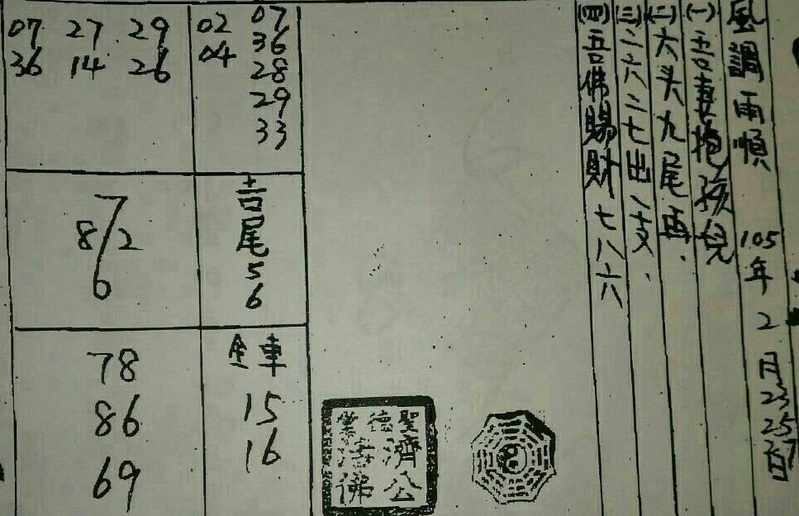 風調雨順 105年2月23 25 27日
(一)吾妻抱孩兒
(二)六头九尾再.
(三)二六二七出一支.
(四)吾佛賜財七八六
02 07
04 36
28
29
33
吉尾56
全車
15
16
07 27 29
36 14 26
7
8/2
6
78
86
69
聖德堂
濟公活佛